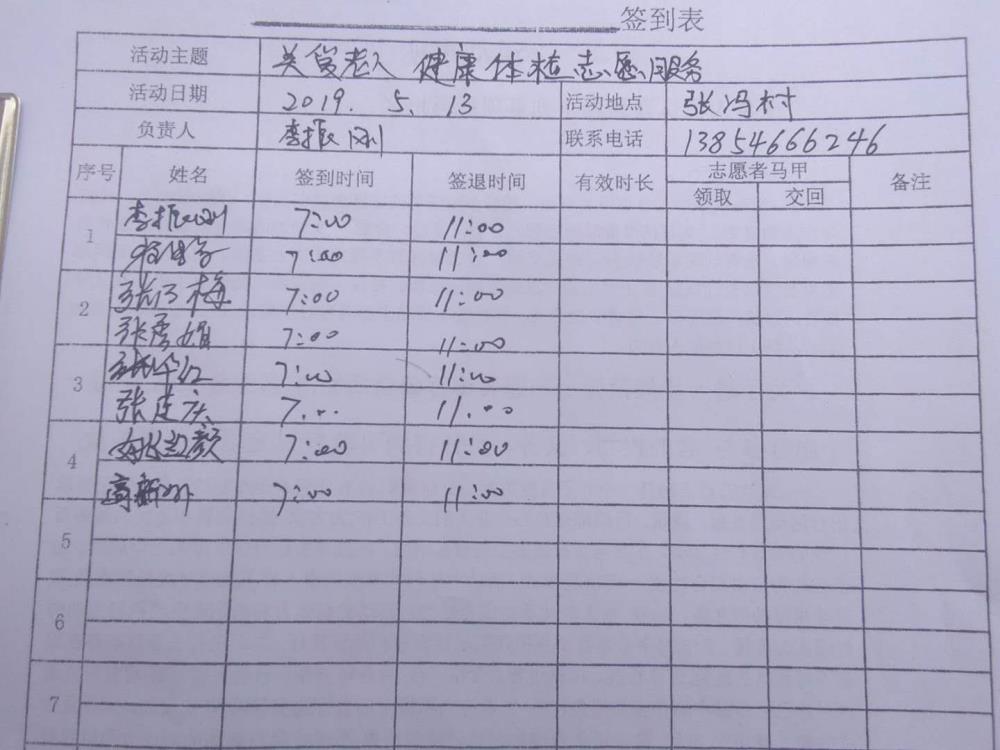 签到表
活动主题 关爱老人 健康体检志愿服务
活动日期 2019.5.13 活动地点 张冯村
负责人 李振刚 联系电话 13854666246
序号 姓名 签到时间 签退时间 有效时长 志愿者马甲 备注
领取 交回
1 李振刚 7:00 11:00
7:00 11:00
2 张 梅 7:00 11:00
张秀娟 7:00 11:00
3 7:00 11:00
张建庆 7:00 11:00
4 7:00 11:00
高新 7:00 11:00
5
6
7